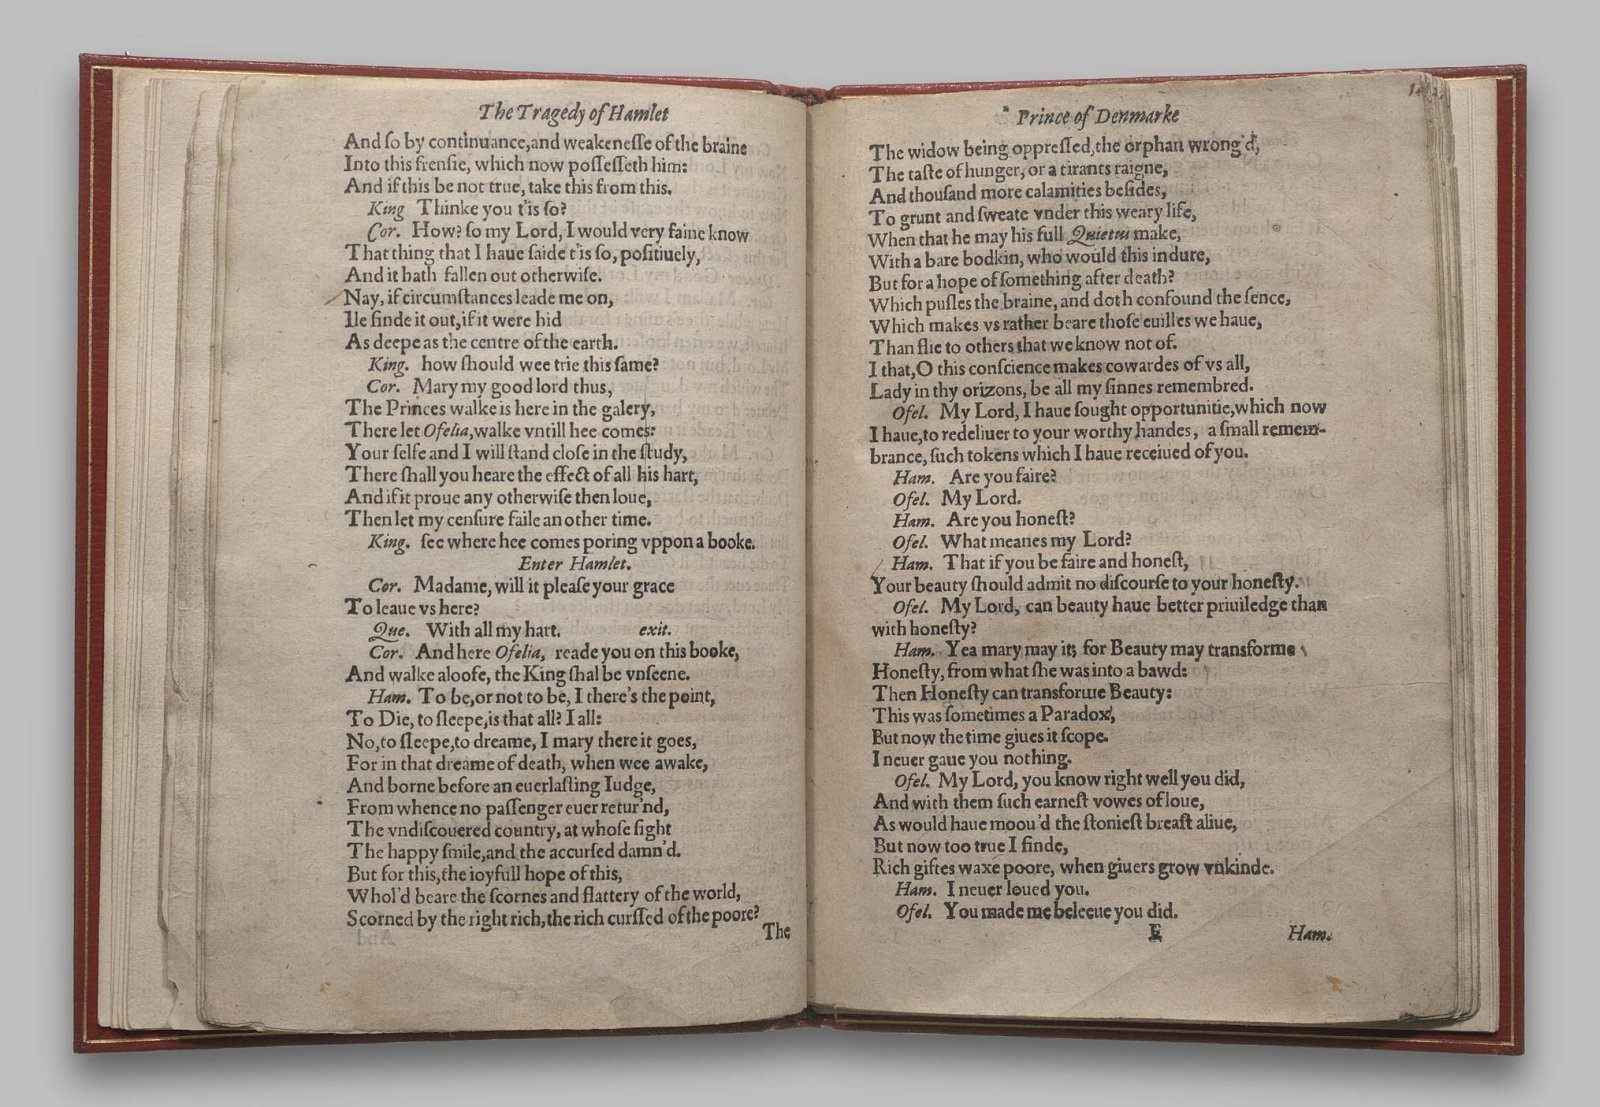 The Tragedy of Hamlet
And ſo by continuance,and weakeneſſe of the braine
Into this frenſie, which now poſſeſſeth him:
And if this be not true, take this from this.
King Thinke you t'is ſo?
Cor. How? ſo my Lord, I would very faine know
That thing that I haue ſaide t'is ſo, poſitiuely,
And it hath fallen out otherwiſe.
Nay, if circumſtances leade me on,
Ile finde it out,if it were hid
As deepe as the centre of the earth.
King. how ſhould wee trie this ſame?
Cor. Mary my good lord thus,
The Princes walke is here in the galery,
There let Ofelia,walke vntill hee comes:
Your ſelfe and I will ſtand cloſe in the ſtudy,
There ſhall you heare the effect of all his hart,
And if it proue any otherwiſe then loue,
Then let my cenſure faile an other time.
King. ſee where hee comes poring vppon a booke.
Enter Hamlet.
Cor. Madame, will it pleaſe your grace
To leaue vs here?
Que. With all my hart. exit.
Cor. And here Ofelia, reade you on this booke,
And walke aloofe, the King ſhal be vnſeene.
Ham. To be,or not to be, I there's the point,
To Die, to ſleepe,is that all? I all:
No,to ſleepe,to dreame, I mary there it goes,
For in that dreame of death, when wee awake,
And borne before an euerlaſting Iudge,
From whence no paſſenger euer retur'nd,
The vndiſcouered country, at whoſe ſight
The happy ſmile,and the accurſed damn'd.
But for this,the ioyfull hope of this,
Whol'd beare the ſcornes and flattery of the world,
Scorned by the right rich,the rich curſſed of the poore?
The
Prince of Denmarke
The widow being oppreſſed,the orphan wrong'd,
The taſte of hunger, or a tirants raigne,
And thouſand more calamities beſides,
To grunt and ſweate vnder this weary life,
When that he may his full Quietus make,
With a bare bodkin, who would this indure,
But for a hope of ſomething after death?
Which puſles the braine, and doth confound the ſence,
Which makes vs rather beare thoſe euilles we haue,
Than flie to others that we know not of.
I that,O this conſcience makes cowardes of vs all,
Lady in thy orizons, be all my ſinnes remembred.
Ofel. My Lord, I haue ſought opportunitie,which now
I haue,to redeliuer to your worthy handes, a ſmall remem-
brance, ſuch tokens which I haue receiued of you.
Ham. Are you faire?
Ofel. My Lord.
Ham. Are you honeſt?
Ofel. What meanes my Lord?
Ham. That if you be faire and honeſt,
Your beauty ſhould admit no diſcourſe to your honeſty.
Ofel. My Lord, can beauty haue better priuiledge than
with honeſty?
Ham. Yea mary may it; for Beauty may transforme
Honeſty, from what ſhe was into a bawd:
Then Honeſty can transforme Beauty:
This was ſometimes a Paradox,
But now the time giues it ſcope.
I neuer gaue you nothing.
Ofel. My Lord, you know right well you did,
And with them ſuch earneſt vowes of loue,
As would haue moou'd the ſtonieſt breaſt aliue,
But now too true I finde,
Rich giftes waxe poore, when giuers grow vnkinde.
Ham. I neuer loued you.
Ofel. You made me beleeue you did.
E Ham.